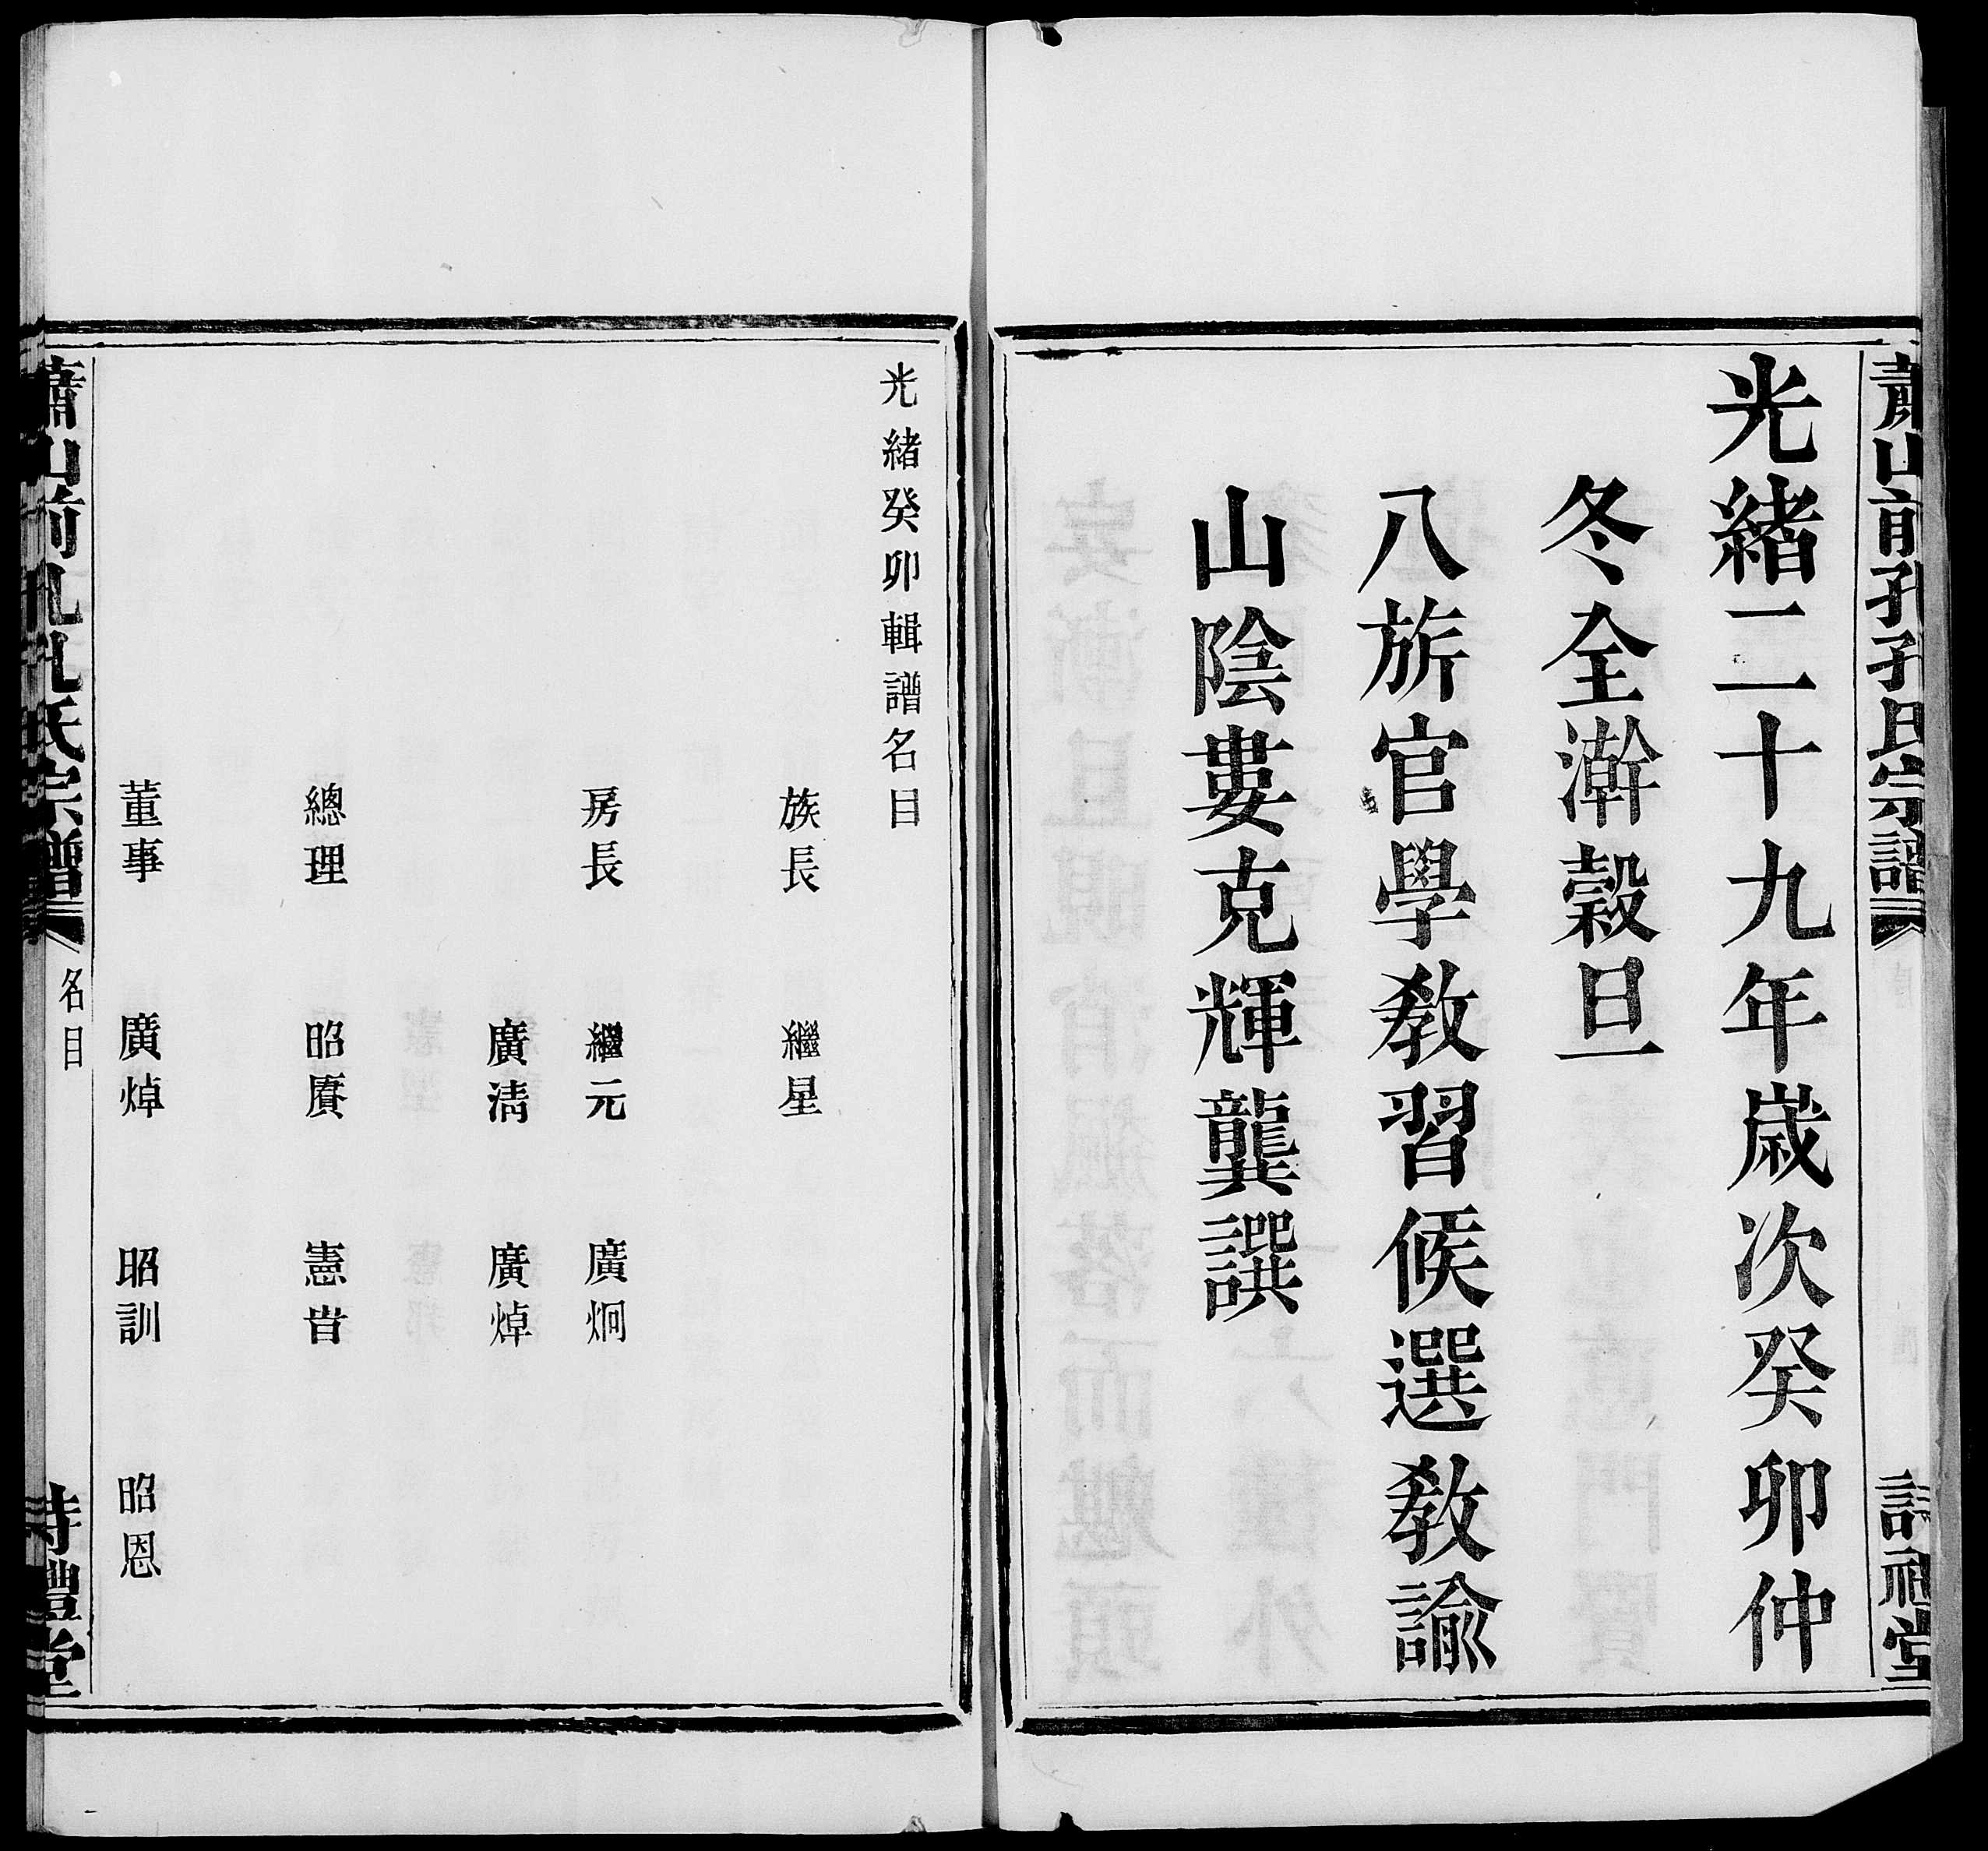 蕭山前孔孔氏宗譜
詩禮堂
光緒二十九年歲次癸卯仲
冬全澣穀旦
八旂官學教習候選教諭
山陰婁克輝龔譔
光緒癸卯輯譜名目
族長 繼星
房長 繼元 廣炯
廣清 廣焯
總理 昭賡 憲旹
董事 廣焯 昭訓 昭恩
蕭山前孔孔氏宗譜 名目 詩禮堂